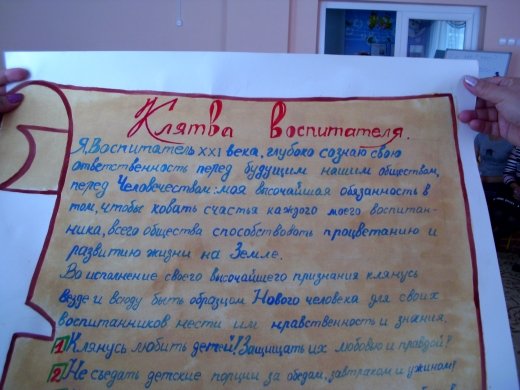 Клятва воспитателя.
Я, Воспитатель XXI века, глубоко сознаю свою
ответственность перед будущим нашим обществом,
перед Человечеством: моя высочайшая обязанность в
том, чтобы ковать счастья каждого моего воспитан-
ника, всего общества способствовать процветанию и
развитию жизни на Земле.
Во исполнение своего высочайшего признания клянусь
везде и всюду быть образцом Нового человека для своих
воспитанников нести им нравственность и знания.
1 Клянусь любить детей! Защищать их любовью и правдой!
2 Не съедать детские порции за обедом, завтраком и ужином!